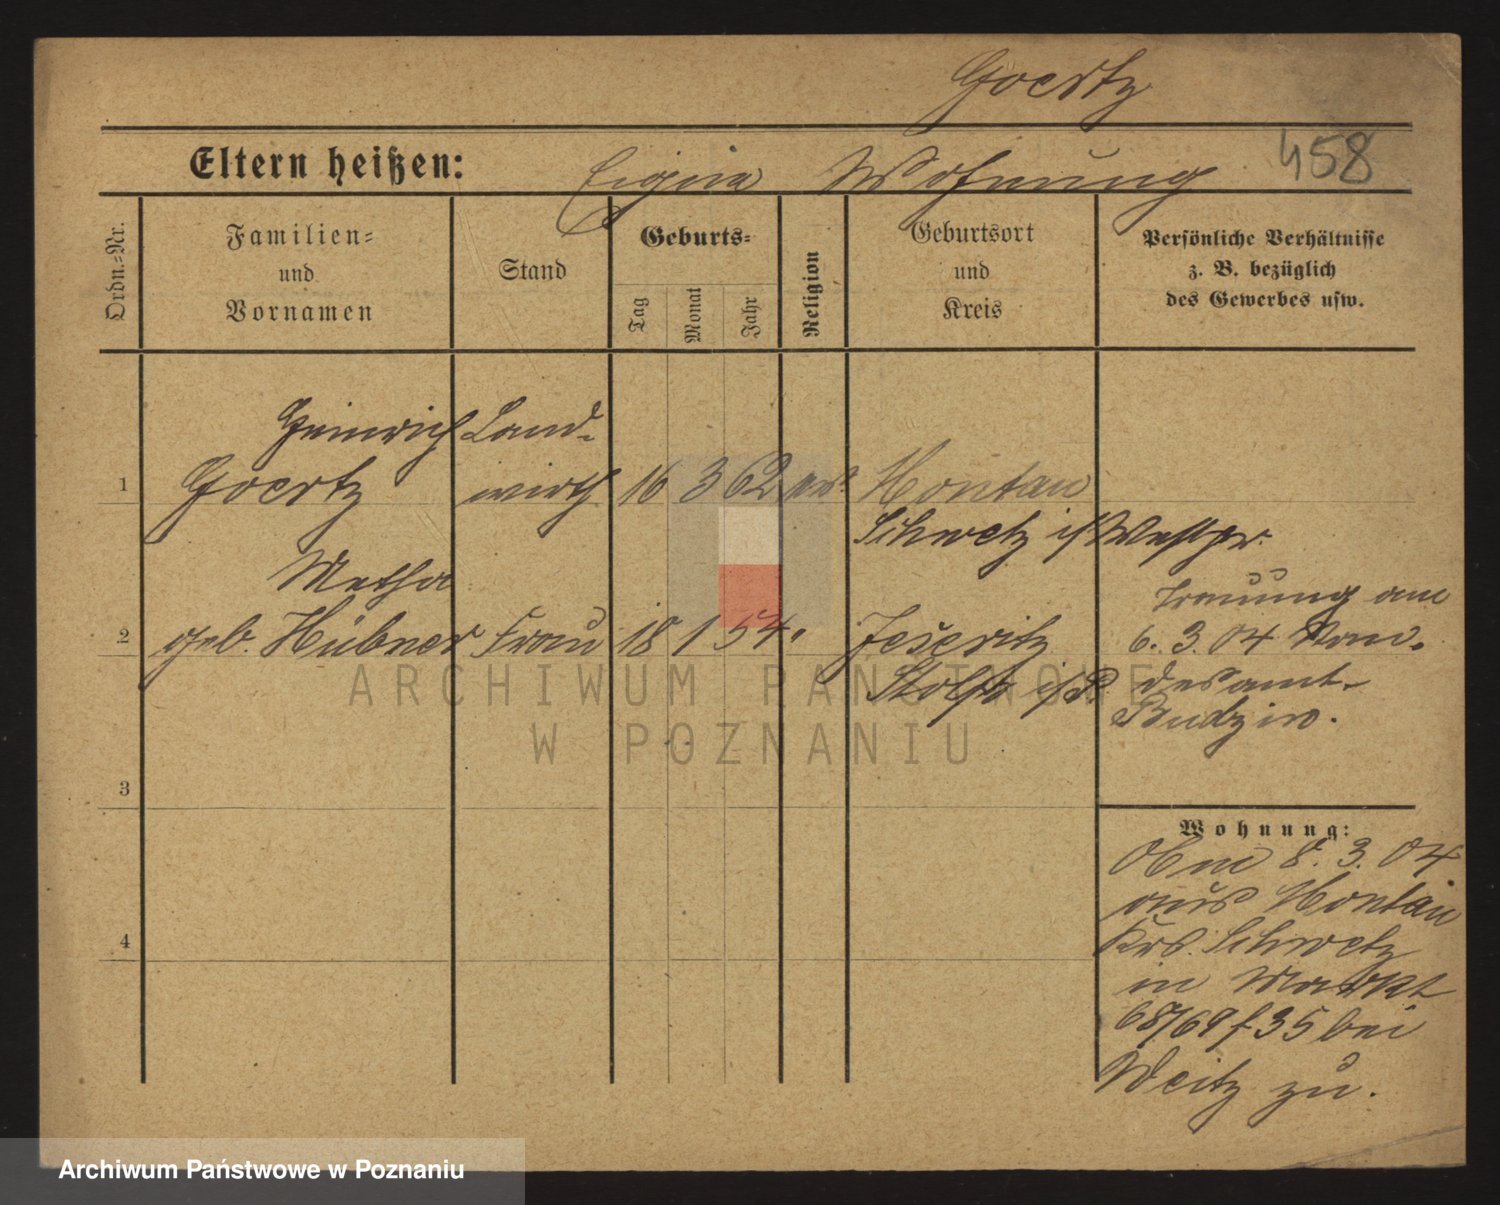 Goertz
Eltern heißen: Eigne Wohnung 458
Ordn.-Nr.
Familien-
und
Vornamen
Stand
Geburts-
Tag
Monat
Jahr
Religion
Geburtsort
und
Kreis
Persönliche Verhältnisse
z. B. bezüglich
des Gewerbes usw.
Heinrich Land-
1 Goertz wirth 16 3 62 Montau
Schwetz i/Westpr.
Metha
2 geb. Hübner Frau 18 1 54 " Jeseritz
Stolp i/P.
Trauung am
6. 3. 04 Stan-
desamt
Budzin.
3
4
Wohnung:
8. 3. 04
aus Montau
Krs. Schwetz
in Markt
68/69 f 35 bei
Weitz zu.
ARCHIWUM PAŃSTWOWE
W POZNANIU
Archiwum Państwowe w Poznaniu